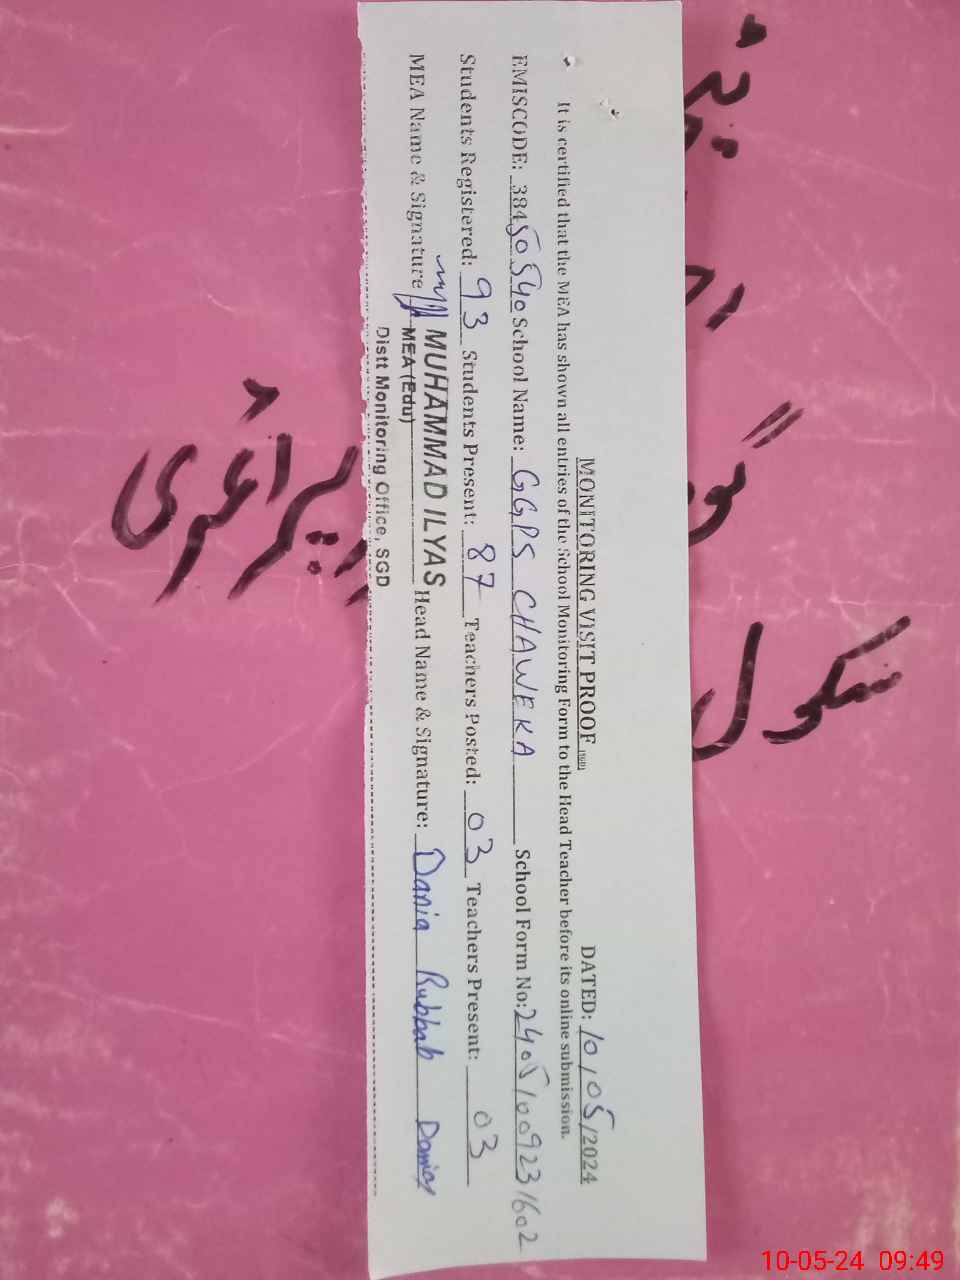 MONITORING VISIT PROOF (SGD)
DATED: 10/05/2024
It is certified that the MEA has shown all entries of the School Monitoring Form to the Head Teacher before its online submission.
EMISCODE: 38450540 School Name: GGPS CHAWEKA School Form No: 24051009231602
Students Registered: 93 Students Present: 87 Teachers Posted: 03 Teachers Present: 03
MEA Name & Signature MUHAMMAD ILYAS Head Name & Signature: Dania Rubbab Dania
MEA (Edu)
Distt Monitoring Office, SGD
سکول
پرائمری
10-05-24 09:49